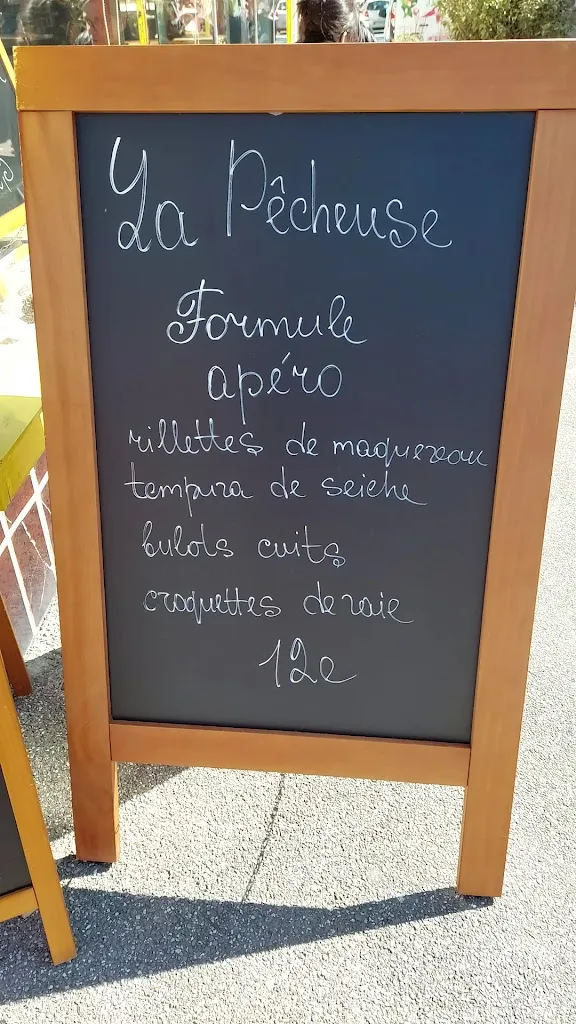 La Pêcheuse
Formule
apéro
rillettes de maquereau
tempura de seiche
bulots cuits
croquettes de raie
12e